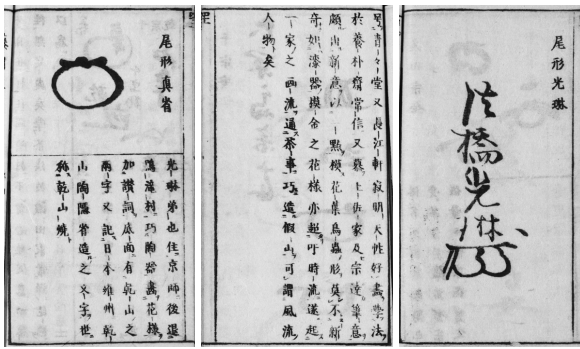 尾形光琳
法橋光琳
号青々堂又長江軒寂明天性好畫學法
於養朴齋常信又慕土佐家及宗達筆意
頗出新意以一點模花葉鳥蟲形莫不新
奇如漆器摸金之花樣亦超于時流遂起
一家之画流通茶事巧造假山可謂風流
人物矣
尾形真省
光琳弟也住京師後退
鳴瀧村巧陶器畫花樣
加讃詞底面有乾山之
兩字又記日本雍州乾
山陶隠省造之又字世
称乾山焼